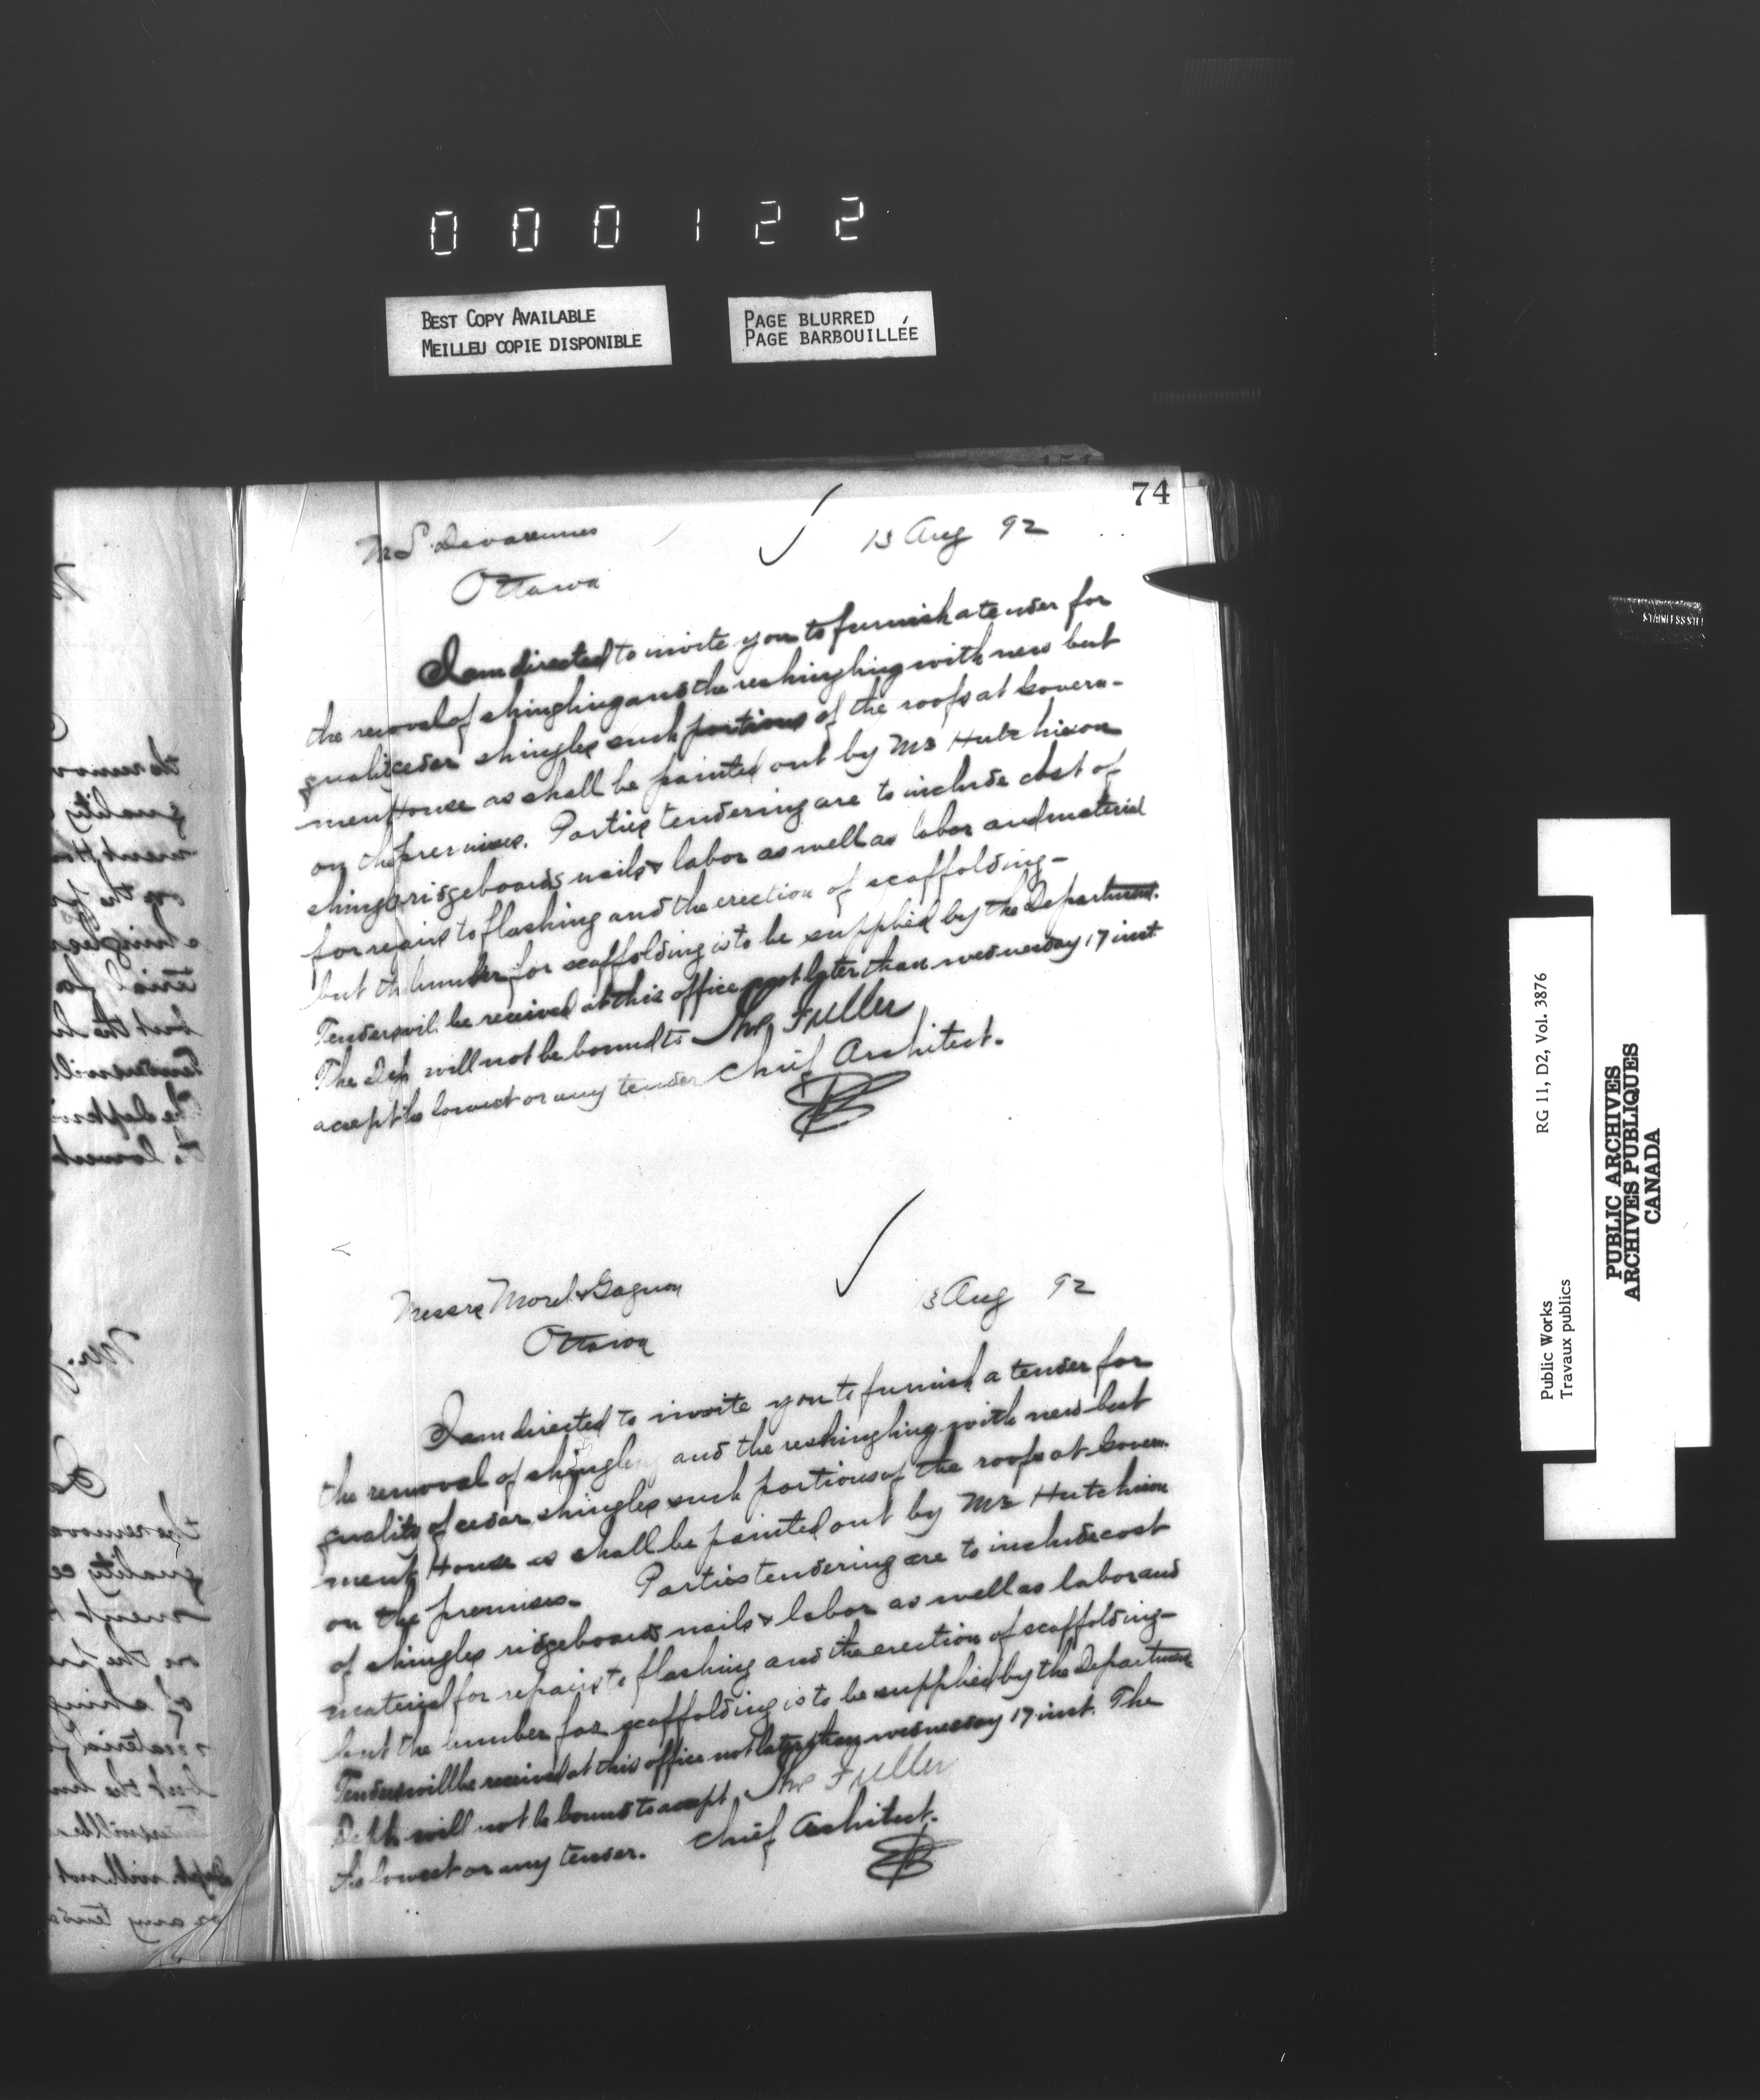 000122
BEST COPY AVAILABLE
MEILLEU COPIE DISPONIBLE
PAGE BLURRED
PAGE BARBOUILLÉE
74
13 Aug 92
Ottawa
I am directed to invite you to furnish a tender for
the removal of shingling and the reshingling with new best
quality cedar shingles such portions of the roofs at Govern-
ment House as shall be pointed out by Mr Hutchison
on the premises. Parties tendering are to include cost of
shingles ridgeboards nails & labor as well as labor and material
for repairs to flashing and the erection of scaffolding-
but the lumber for scaffolding is to be supplied by the Department.
Tenders will be received at this office not later than wednesday 17 inst.
The Dep will not be bound to Thos Fuller
accept the lowest or any tender Chief Architect.
Messrs Morel & Gagnon
13 Aug 92
Ottawa
I am directed to invite you to furnish a tender for
the removal of shingling and the reshingling with new best
quality of cedar shingles such portions of the roofs at Govern-
ment House as shall be pointed out by Mr Hutchison
on the premises. Parties tendering are to include cost
of shingles ridgeboards nails & labor as well as labor and
material for repairs to flashing and the erection of scaffolding-
but the lumber for scaffolding is to be supplied by the Department
Tenders will be received at this office not later than wednesday 17 inst. The
Dept will not be bound to accept Thos Fuller
the lowest or any tender. Chief Architect.
Public Works RG 11, D2, Vol. 3876
Travaux publics
PUBLIC ARCHIVES
ARCHIVES PUBLIQUES
CANADA